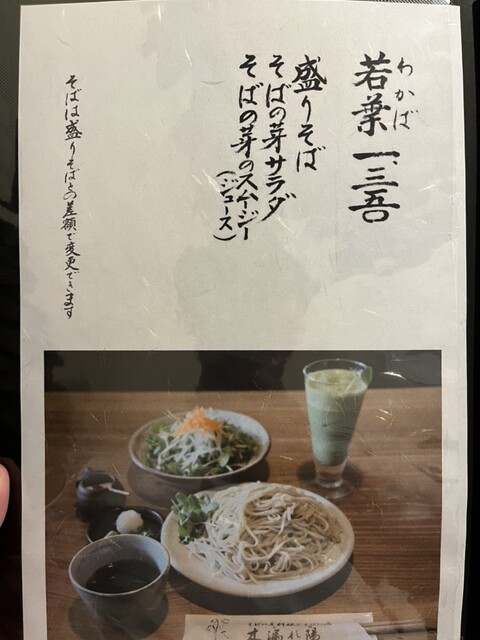 わかば
若葉 一、三五〇
盛りそば
そばの芽サラダ
そばの芽のスムージー
(ジュース)
そばは盛りそばとの差額で変更できます